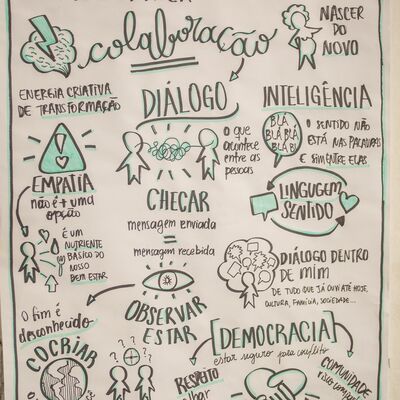 colaboração
NASCER
DO
NOVO
ENERGIA CRIATIVA
DE TRANSFORMAÇÃO
DIÁLOGO
INTELIGÊNCIA
BLÁ
BLÁ BLÁ
BLÁ BLÁ
BLÁ BL
O SENTIDO NÃO
ESTÁ NAS PALAVRAS
E SIM ENTRE ELAS
O QUE
ACONTECE
ENTRE AS
PESSOAS
EMPATIA
não é + uma
opção
É UM
NUTRIENTE
BÁSICO DO
NOSSO
BEM ESTAR
CHECAR
mensagem enviada
=
mensagem recebida
LINGUGEM
SENTIDO
DIÁLOGO DENTRO
DE MIM
DE TUDO QUE JÁ OUVI ATÉ HOJE,
CULTURA, FAMÍLIA, SOCIEDADE...
OBSERVAR
ESTAR
O fim é
desconhecido
COCRIAR
[DEMOCRACIA]
estar seguro para conflito
RESPEITO
olhar
COMUNIDADE